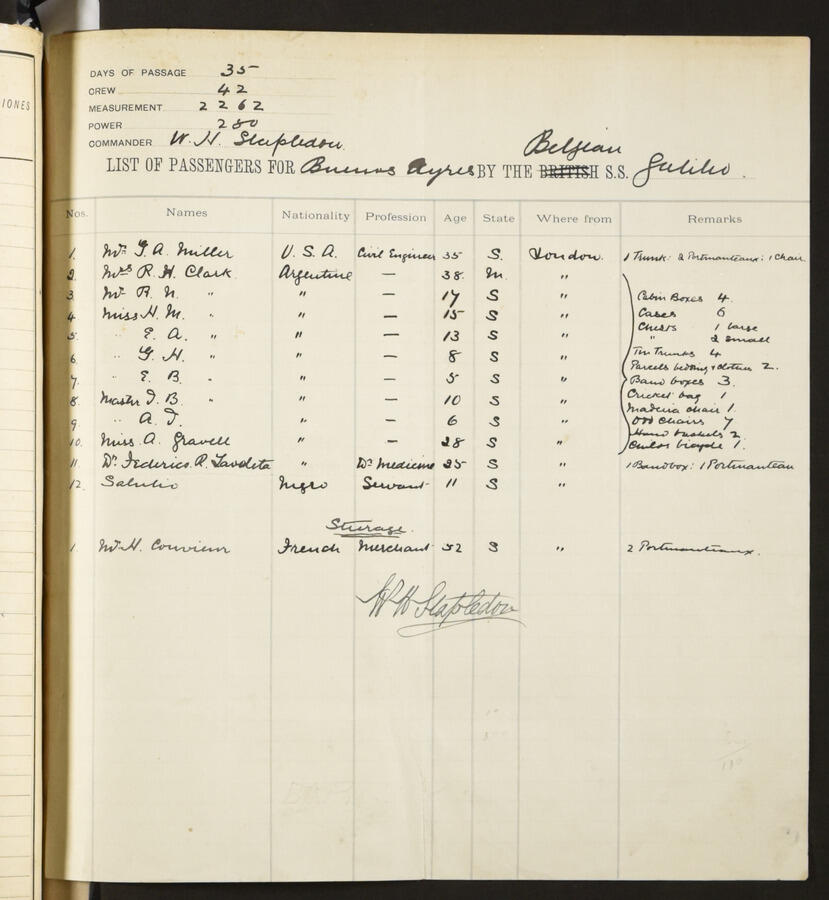 IONES
DAYS OF PASSAGE 35
CREW 42
MEASUREMENT 2262
POWER 280
COMMANDER W. H. Stapledon.
Belgian
LIST OF PASSENGERS FOR Buenos Ayres BY THE BRITISH S.S. Galileo.
Nos. Names Nationality Profession Age State Where from Remarks
1. Mr. G. A. Miller U. S. A. Civil Engineer 35 S. London. 1 Trunk: 2 Portmanteaux: 1 Chair
2. Mrs R. H. Clark Argentine — 38. M. "
3. Mr. R. N. " " — 17 S " Cabin Boxes 4.
4 Miss H. M. " " — 15 S " Cases 6
Chests 1 large
5. " E. A. " " — 13 S " " 2 small
6. " G. H. " " — 8 S " Tin Trunks 4
Parcels bedding & clothes 2.
7. " E. B. " " — 5 S " Band boxes 3.
8. Master I. B. " " — 10 S " Cricket bag 1
Madeira chair 1.
9. " A. I. " — 6 S " Odd Chairs 7
10. Miss. A. Gravell " — 28 S " Hand baskets 2
Childs bicycle 1.
11. Dr. Federico. R. " Dr. Medicine 25 S " 1 Bandbox: 1 Portmanteau
12. Negro Servant 11 S "
Steerage.
1. Mr. H. French Merchant 52 S " 2 Portmanteaux.
W H Stapledon